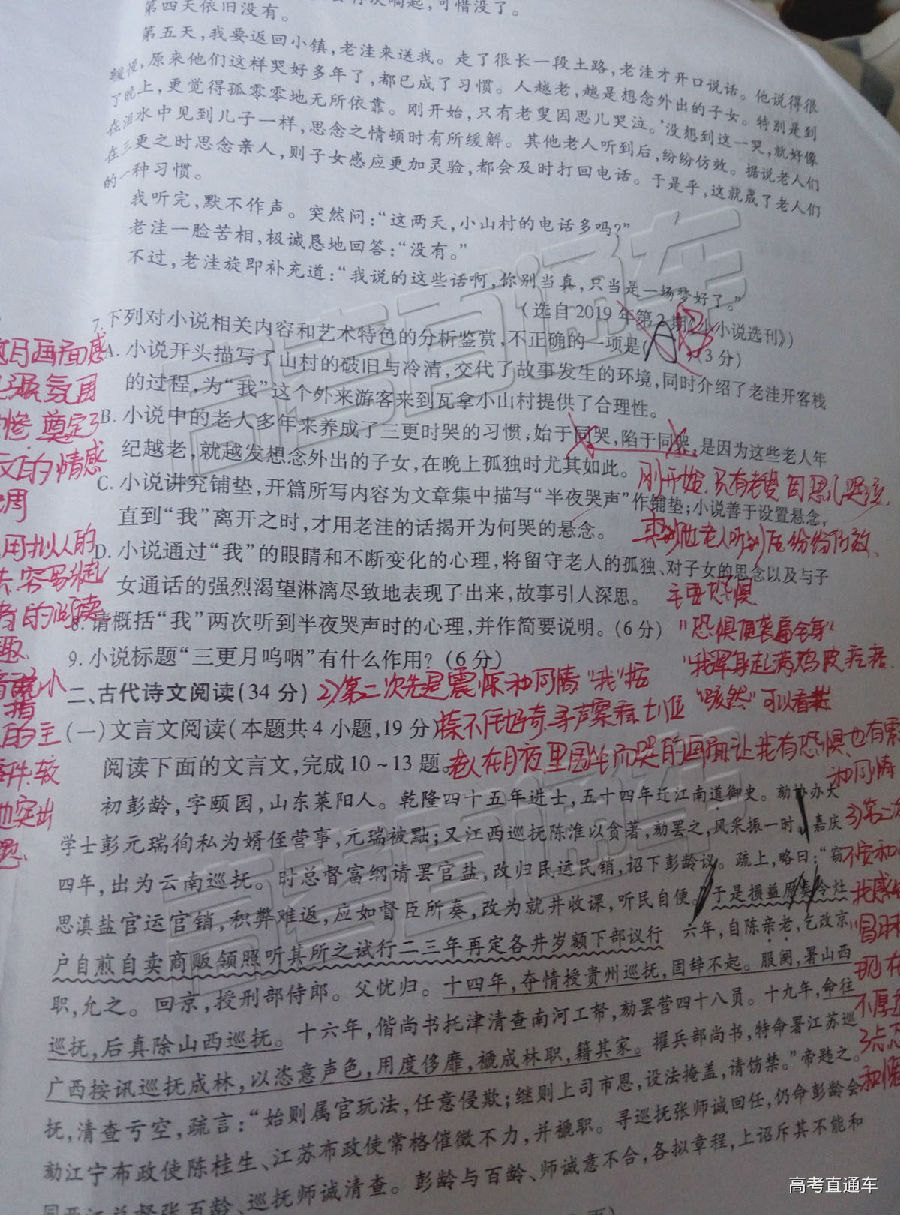 第四天依旧没有。
第五天，我要返回小镇，老洼来送我。走了很长一段土路，老洼才开口说话。他说得很
缓慢，原来他们这样哭好多年了，都已成了习惯。人越老，越是想念外出的子女。特别是到
了晚上，更觉得孤零零地无所依靠。刚开始，只有老叟因思儿哭泣。没想到这一哭，就好像
在泪水中见到儿子一样，思念之情顿时有所缓解。其他老人听到后，纷纷仿效。据说老人们
在三更之时思念亲人，则子女感应更加灵验，都会及时打回电话。于是乎，这就成了老人们
的一种习惯。
我听完，默不作声。突然问：“这两天，小山村的电话多吗？”
老洼一脸苦相，极诚恳地回答：“没有。”
不过，老洼旋即补充道：“我说的这些话啊，你别当真，只当是一场梦好了。”
（选自2019年第2期《小小说选刊》）
7.下列对小说相关内容和艺术特色的分析鉴赏，不正确的一项是（3分）
A.小说开头描写了山村的破旧与冷清，交代了故事发生的环境，同时介绍了老洼开客栈
的过程，为“我”这个外来游客来到瓦拿小山村提供了合理性。
B.小说中的老人多年来养成了三更时哭的习惯，始于同哭，陷于同哭，是因为这些老人年
纪越老，就越发想念外出的子女，在晚上孤独时尤其如此。
刚开始，只有老叟因思儿哭泣
C.小说讲究铺垫，开篇所写内容为文章集中描写“半夜哭声”作铺垫；小说善于设置悬念，
直到“我”离开之时，才用老洼的话揭开为何哭的悬念。
其他老人听到后纷纷仿效、
D.小说通过“我”的眼睛和不断变化的心理，将留守老人的孤独、对子女的思念以及与子
女通话的强烈渴望淋漓尽致地表现了出来，故事引人深思。
8.请概括“我”两次听到半夜哭声时的心理，并作简要说明。（6分）
“恐惧便袭遍全身”
9.小说标题“三更月呜咽”有什么作用？（6分）
“我浑身起满鸡皮疙瘩
二、古代诗文阅读（34分）
2)第二次先是震惊和同情
（一）文言文阅读（本题共4小题，19分）
阅读下面的文言文，完成10~13题。
和同情
初彭龄，字颐园，山东莱阳人。乾隆四十五年进士，五十四年迁江南道御史。劾协办大
学士彭元瑞徇私为婿侄营事，元瑞被黜；又江西巡抚陈淮以贪著，劾罢之，风采振一时。嘉庆
四年，出为云南巡抚。时总督富纲请罢官盐，改归民运民销，诏下彭龄议。疏上，略曰：“窃
思滇盐官运官销，积弊难返，应如督臣所奏，改为就井收课，听民自便。于是损益原奏令灶
户自煎自卖商贩领照听其所之试行二三年再定各井岁额下部议行　六年，自陈亲老，乞改京
职，允之。回京，授刑部侍郎。父忧归。十四年，夺情授贵州巡抚，固辞不起。服阕，署山西
巡抚，后真除山西巡抚。十六年，偕尚书托津清查南河工帑，劾罢营四十八员。十九年，命往
广西按讯巡抚成林，以恣意声色，用度侈靡，褫成林职，籍其家。擢兵部尚书，特命署江苏巡
抚，清查亏空，疏言：“始则属官玩法，任意侵欺；继则上司市恩，设法掩盖，请饬禁。”帝韪之。
劾江宁布政使陈桂生、江苏布政使常格催徵不力，并褫职。寻巡抚张师诚回任，仍命彭龄会
同两江总督张百龄、巡抚师诚清查。彭龄与百龄、师诚意不合，各拟章程，上诏斥其不能和
高考直通车